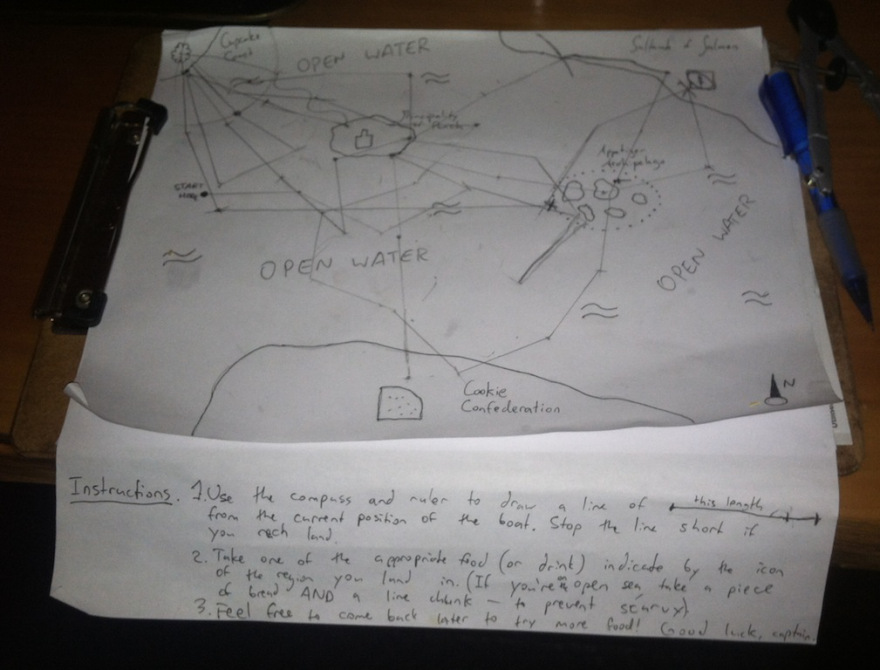 Cupcake
Coast
OPEN WATER
Sultanate of Salmon
Principality
of Punch
Appetizer
Archipelago
START
HERE
OPEN WATER
OPEN WATER
N
Cookie
Confederation
Instructions. 1. Use the compass and ruler to draw a line of this length
from the current position of the boat. Stop the line short if
you reach land.
2. Take one of the appropriate food (or drink) indicate by the icon
of the region you land in. (If you're in open sea, take a piece
of bread AND a lime chunk – to prevent scurvy).
3. Feel free to come back later to try more food! Good luck, captain.